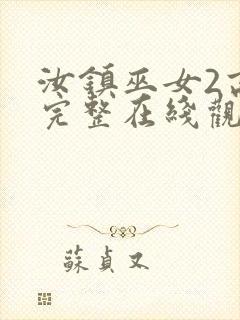 汝鎮巫女2
完整在綫觀
蘇貞又